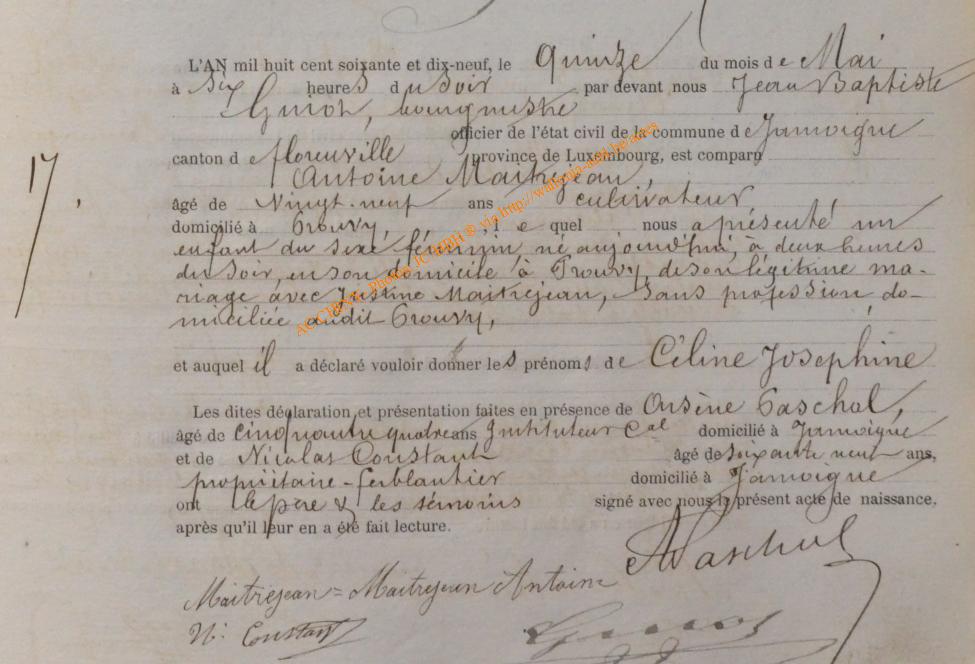 L'AN mil huit cent soixante et dix-neuf, le quinze du mois de Mai
à six heures du soir par devant nous Jean Baptiste
Guiot, bourgmestre
officier de l'état civil de la commune de Jamoigne
canton de florenville province de Luxembourg, est comparu
Antoine Maitrejean,
âgé de vingt-neuf ans cultivateur
domicilié à Prouvy, lequel nous a présenté un
enfant du sexe féminin, né aujourd'hui, à deux heures
du soir, en son domicile à Prouvy, de son légitime ma-
riage avec Justine Maitrejean, sans profession, do-
miciliée audit Prouvy,
17,
et auquel il a déclaré vouloir donner les prénoms de Céline Josephine
Les dites déclaration et présentation faites en présence de Arsène Paschal,
âgé de cinquante quatre ans Instituteur cal domicilié à Jamoigne
et de Nicolas Constant âgé de soixante neuf ans,
propriétaire-ferblantier domicilié à Jamoigne
ont le père & les témoins signé avec nous le présent acte de naissance,
après qu'il leur en a été fait lecture.
A Paschal
Maitrejean = Maitrejean Antoine
N. Constant
Guiot
ACCHEVE Photos JC HEIH ® via http://wallonia-asbl.be/actes